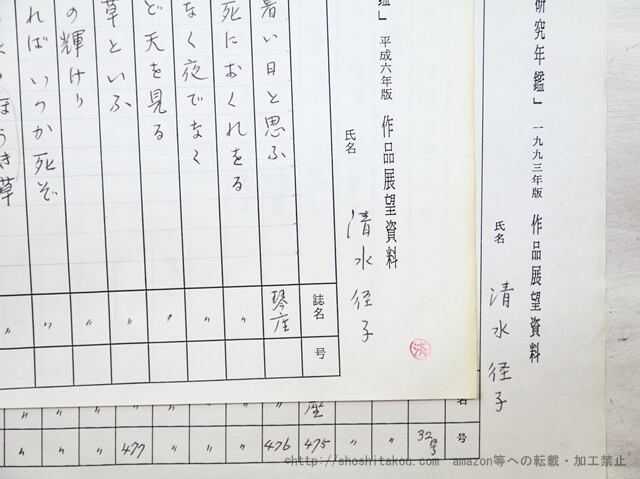 研究年鑑』 一九九三年版 作品展望資料
氏名 清水径子
鑑』 平成六年版 作品展望資料
氏名 清水径子
済
誌名 号
暑い日と思ふ 琴座
死におくれをる 〃
なく夜でなく 〃
ど天を見る 〃
草といふ 〃
の輝けり 〃
ればいつか死ぞ 〃
ほうき草 〃
名 号
32号
〃
〃
座 475
〃 476
〃
〃
〃
〃 477
〃 〃
〃 〃
〃 〃
©http://shoshitakou.com amazon等への転載・加工禁止